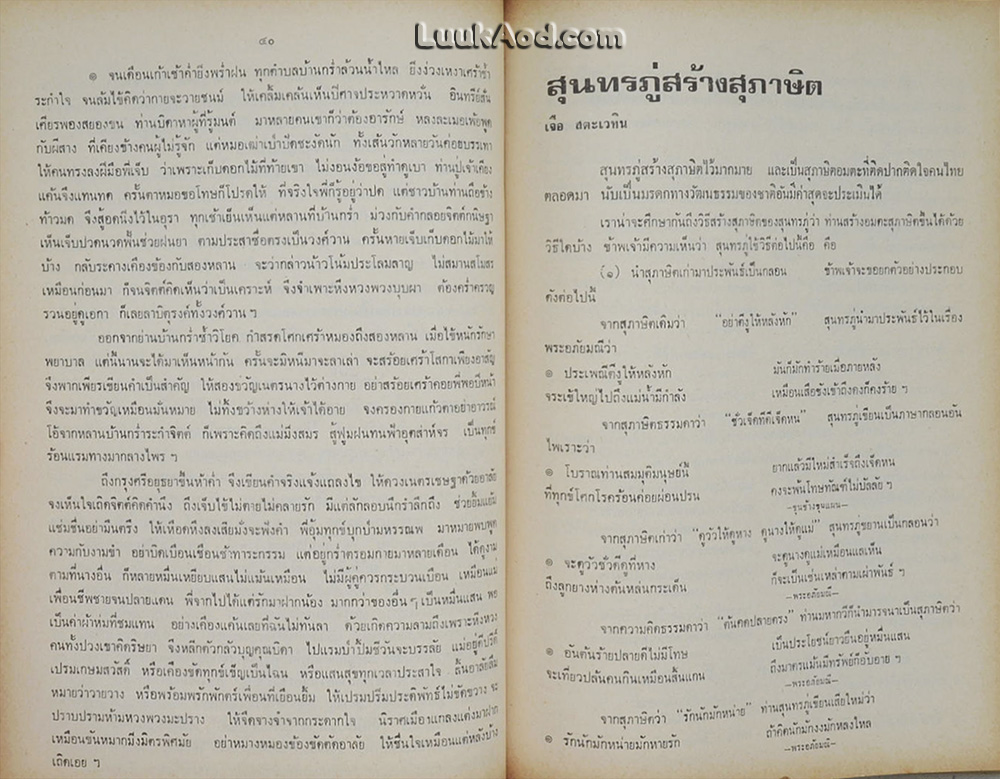 LuukAod.com
๔๐
๏ จนเดือนเก้าเช้าค่ำยิ่งพร่ำฝน ทุกตำบลบ้านกร่ำล้วนน้ำไหล ยิ่งง่วงเหงาเศร้าช้ำ
ระกำใจ จนล้มไข้คิดว่ากายจะวายชนม์ ให้เคลิ้มเคล้นเห็นปีศาจประหวาดหวั่น อินทรีย์สั่น
เศียรพองสยองขน ท่านบิดาหาผู้ที่รู้มนต์ มาหลายคนเขาก็ว่าต้องอารักษ์ หลงละเมอเพ้อพูด
กับผีสาง ที่เคียงข้างคนผู้ไม่รู้จัก แต่หมอเฒ่าเป่าปัดชะงัดนัก ทั้งเส้นวักหลายวันค่อยบรรเทา
ให้คนทรงลงผีเมื่อพี่เจ็บ ว่าเพราะเก็บดอกไม้ที่ท้ายเขา ไม่งอนง้อขอสู่ทำดูเบา ท่านปู่เจ้าเคือง
แค้นจึงแทนทด ครั้นตาหมอขอโทษก็โปรดให้ ที่จริงใจพี่ก็รู้อยู่ว่าปด แต่ชาวบ้านท่านถือข้าง
ท้าวมด จึงสู้อดนิ่งไว้ในอุรา ทุกเช้าเย็นเห็นแต่หลานที่บ้านกร่ำ ม่วงกับคำกลอยจิตต์กนิษฐา
เห็นเจ็บปวดนวดฟั้นช่วยฝนยา ตามประสาซื่อตรงเป็นวงศ์วาน ครั้นหายเจ็บเก็บดอกไม้มาให้
บ้าง กลับระคางเคืองข้องกับสองหลาน จะว่ากล่าวน้าวโน้มประโลมลาญ ไม่สมานสโมสร
เหมือนก่อนมา ก็จนจิตต์คิดเห็นว่าเป็นเคราะห์ จึงจำเพาะหึงหวงพวงบุบผา ต้องคร่ำครวญ
รวนอยู่ดูเอกา ก็เลยลาบิตุรงค์ทั้งวงศ์วาน ฯ
ออกจากย่านบ้านกร่ำซ้ำวิโยค กำสรดโศกเศร้าหมองถึงสองหลาน เมื่อไข้หนักรักษา
พยาบาล แต่นี้นานจะได้มาเห็นหน้ากัน ครั้นจะมิหนีมาจะลาเล่า จะสร้อยเศร้าโสกาเพียงอาสัญ
จึงพากเพียรเขียนคำเป็นสำคัญ ให้สองขวัญเนตรนางไว้ต่างกาย อย่าสร้อยเศร้าคอยพี่พอปีหน้า
จึงจะมาทำขวัญเหมือนมั่นหมาย ไม่ทิ้งขว้างห่างให้เจ้าได้อาย จงครองกายแก้วตาอย่าอาวรณ์
โอ้จากหลานบ้านกร่ำระกำจิตต์ ก็เพราะคิดถึงแม่มิ่งสมร สู้ฟูมฝนทนฟ้าอุตส่าห์จร เป็นทุกข์
ร้อนแรมทางมากลางไพร ฯ
ถึงกรุงศรีอยุธยาขึ้นห้าค่ำ จึงเขียนคำจริงแจ้งแถลงไข ให้ดวงเนตรเชษฐาด้วยอาลัย
จงเห็นใจเถิดจิตต์คิดคำนึง ถึงเจ็บไข้ไม่ตายไม่คลายรัก มีแต่ลักลอบนึกรำลึกถึง ช่วยยิ้มแย้ม
แช่มชื่นอย่ามึนตรึง ให้เหือดหึงลงเสียมั่งจะฟังคำ พี่อุ้มทุกข์บุกป่าบ่าหรรณพ มาหมายพบพูด
ความกับงามขำ อย่าบิดเบือนเชือนช้าทาระกรรม แต่อยู่กร่ำตรอมกายมาหลายเดือน ได้ดูงาม
ตามที่นางอื่น ก็หลายหมื่นเหยียบแสนไม่แม้นเหมือน ไม่มีผู้คู่ควรกระบวนเบือน เหมือนแม่
เพื่อนชีพชายจนปลายแดน พี่จากไปได้แต่รักมาฝากน้อง มากกว่าของอื่นๆ เป็นหมื่นแสน พอ
เป็นค่าผ้าห่มที่ชมแทน อย่างเคืองแค้นเลยที่ฉันไม่ทันลา ด้วยเกิดความลามถึงเพราะหึงหวง
คนทั้งปวงเขาคิดริษยา จึงหลีกตัวกลัวบุญคุณบิดา ไปแรมป่าปิ้มชีวันจะบรรลัย แม่อยู่ดีปรีดิ์
เปรมเกษมสวัสดิ์ หรือเคืองขัดทุกข์เข็ญเป็นไฉน หรือแสนสุขทุกเวลาประสาใจ สิ้นอาลัยลืม
หมายว่าวายวาง หรือพร้อมพรักพักตร์เพื่อนที่เยือนยิ้ม ให้เปรมปริ่มประดิพัทธ์ไม่ขัดขวาง จะ
ปราบปรามห้ามหวงพวงมะปราง ให้จืดจางจำจากกระดากใจ นิราศเมืองแกลงแต่งมาฝาก
เหมือนขันหมากมิ่งมิตรพิศมัย อย่าหมางหมองข้องขัดตัดอาลัย ให้ชื่นใจเหมือนแต่หลังบ้าง
เถิดเอย ฯ
สุนทรภู่สร้างสุภาษิต
เจือ สตะเวทิน
สุนทรภู่สร้างสุภาษิตไว้มากมาย และเป็นสุภาษิตอมตะที่ติดปากติดใจคนไทย
ตลอดมา นับเป็นมรดกทางวัฒนธรรมของชาติอันมีค่าสุดจะประเมินได้
เราน่าจะศึกษากันถึงวิธีสร้างสุภาษิตของสุนทรภู่ว่า ท่านสร้างอมตะสุภาษิตขึ้นได้ด้วย
วิธีใดบ้าง ข้าพเจ้ามีความเห็นว่า สุนทรภู่ใช้วิธีต่อไปนี้คือ คือ
(๑) นำสุภาษิตเก่ามาประพันธ์เป็นกลอน ข้าพเจ้าจะขอยกตัวอย่างประกอบ
ดังต่อไปนี้
จากสุภาษิตเดิมว่า “อย่าตีงูให้หลังหัก” สุนทรภู่นำมาประพันธ์ไว้ในเรื่อง
พระอภัยมณีว่า
๏ ประเพณีตีงูให้หลังหัก มันก็มักทำร้ายเมื่อภายหลัง
จระเข้ใหญ่ไปถึงแม่น้ำมีกำลัง เหมือนเสือขังเข้าถึงดงก็คงร้าย ฯ
จากสุภาษิตธรรมดาว่า “ชั่วเจ็ดทีดีเจ็ดหน” สุนทรภู่เขียนเป็นภาษากลอนอัน
ไพเราะว่า
๏ โบราณท่านสมมุติมนุษย์นี้ ยากแล้วมีใหม่สำเร็จถึงเจ็ดหน
ที่ทุกข์โศกโรคร้อนค่อยผ่อนปรน คงจะพ้นโทษทัณฑ์ไม่บัลลัย ฯ
—ขุนช้างขุนแผน—
จากสุภาษิตเก่าว่า “ดูวัวให้ดูหาง ดูนางให้ดูแม่” สุนทรภู่ขยานเป็นกลอนว่า
๏ จะดูวัวชั่วดีดูที่หาง จะดูนางดูแม่เหมือนแลเห็น
ถึงลูกยางห่างต้นหล่นกระเด็น ก็จะเป็นเช่นเหล่าตามเผ่าพันธ์ ฯ
—พระอภัยมณี—
จากความคิดธรรมดาว่า “ต้นคดปลายตรง” ท่านมหากวีก็นำมารจนาเป็นสุภาษิตว่า
๏ อันต้นร้ายปลายดีไม่มีโทษ เป็นประโยชน์ยาวยืนอยู่หมื่นแสน
จะเที่ยวปล้นคนกินเหมือนสิ้นแกน ถึงมาตรแม้นมีทรัพย์ก็อับอาย ฯ
—พระอภัยมณี—
จากสุภาษิตว่า “รักนักมักหน่าย” ท่านสุนทรภู่เขียนเสียใหม่ว่า
๏ รักนักมักหน่ายมักหายรัก ถ้าคิดนักมักงงมักหลงใหล
—พระอภัยมณี—